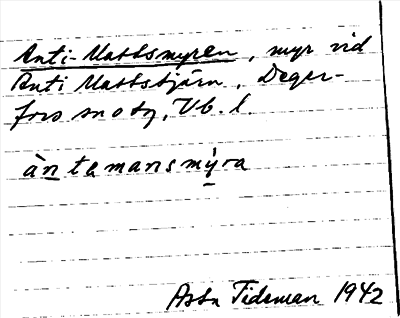 Anti-Mattsmyren, myr vid
Anti Mattstjärn, Deger-
fors sn o tg, Vb. l.
àntamansmýra
Asta Tideman 1942